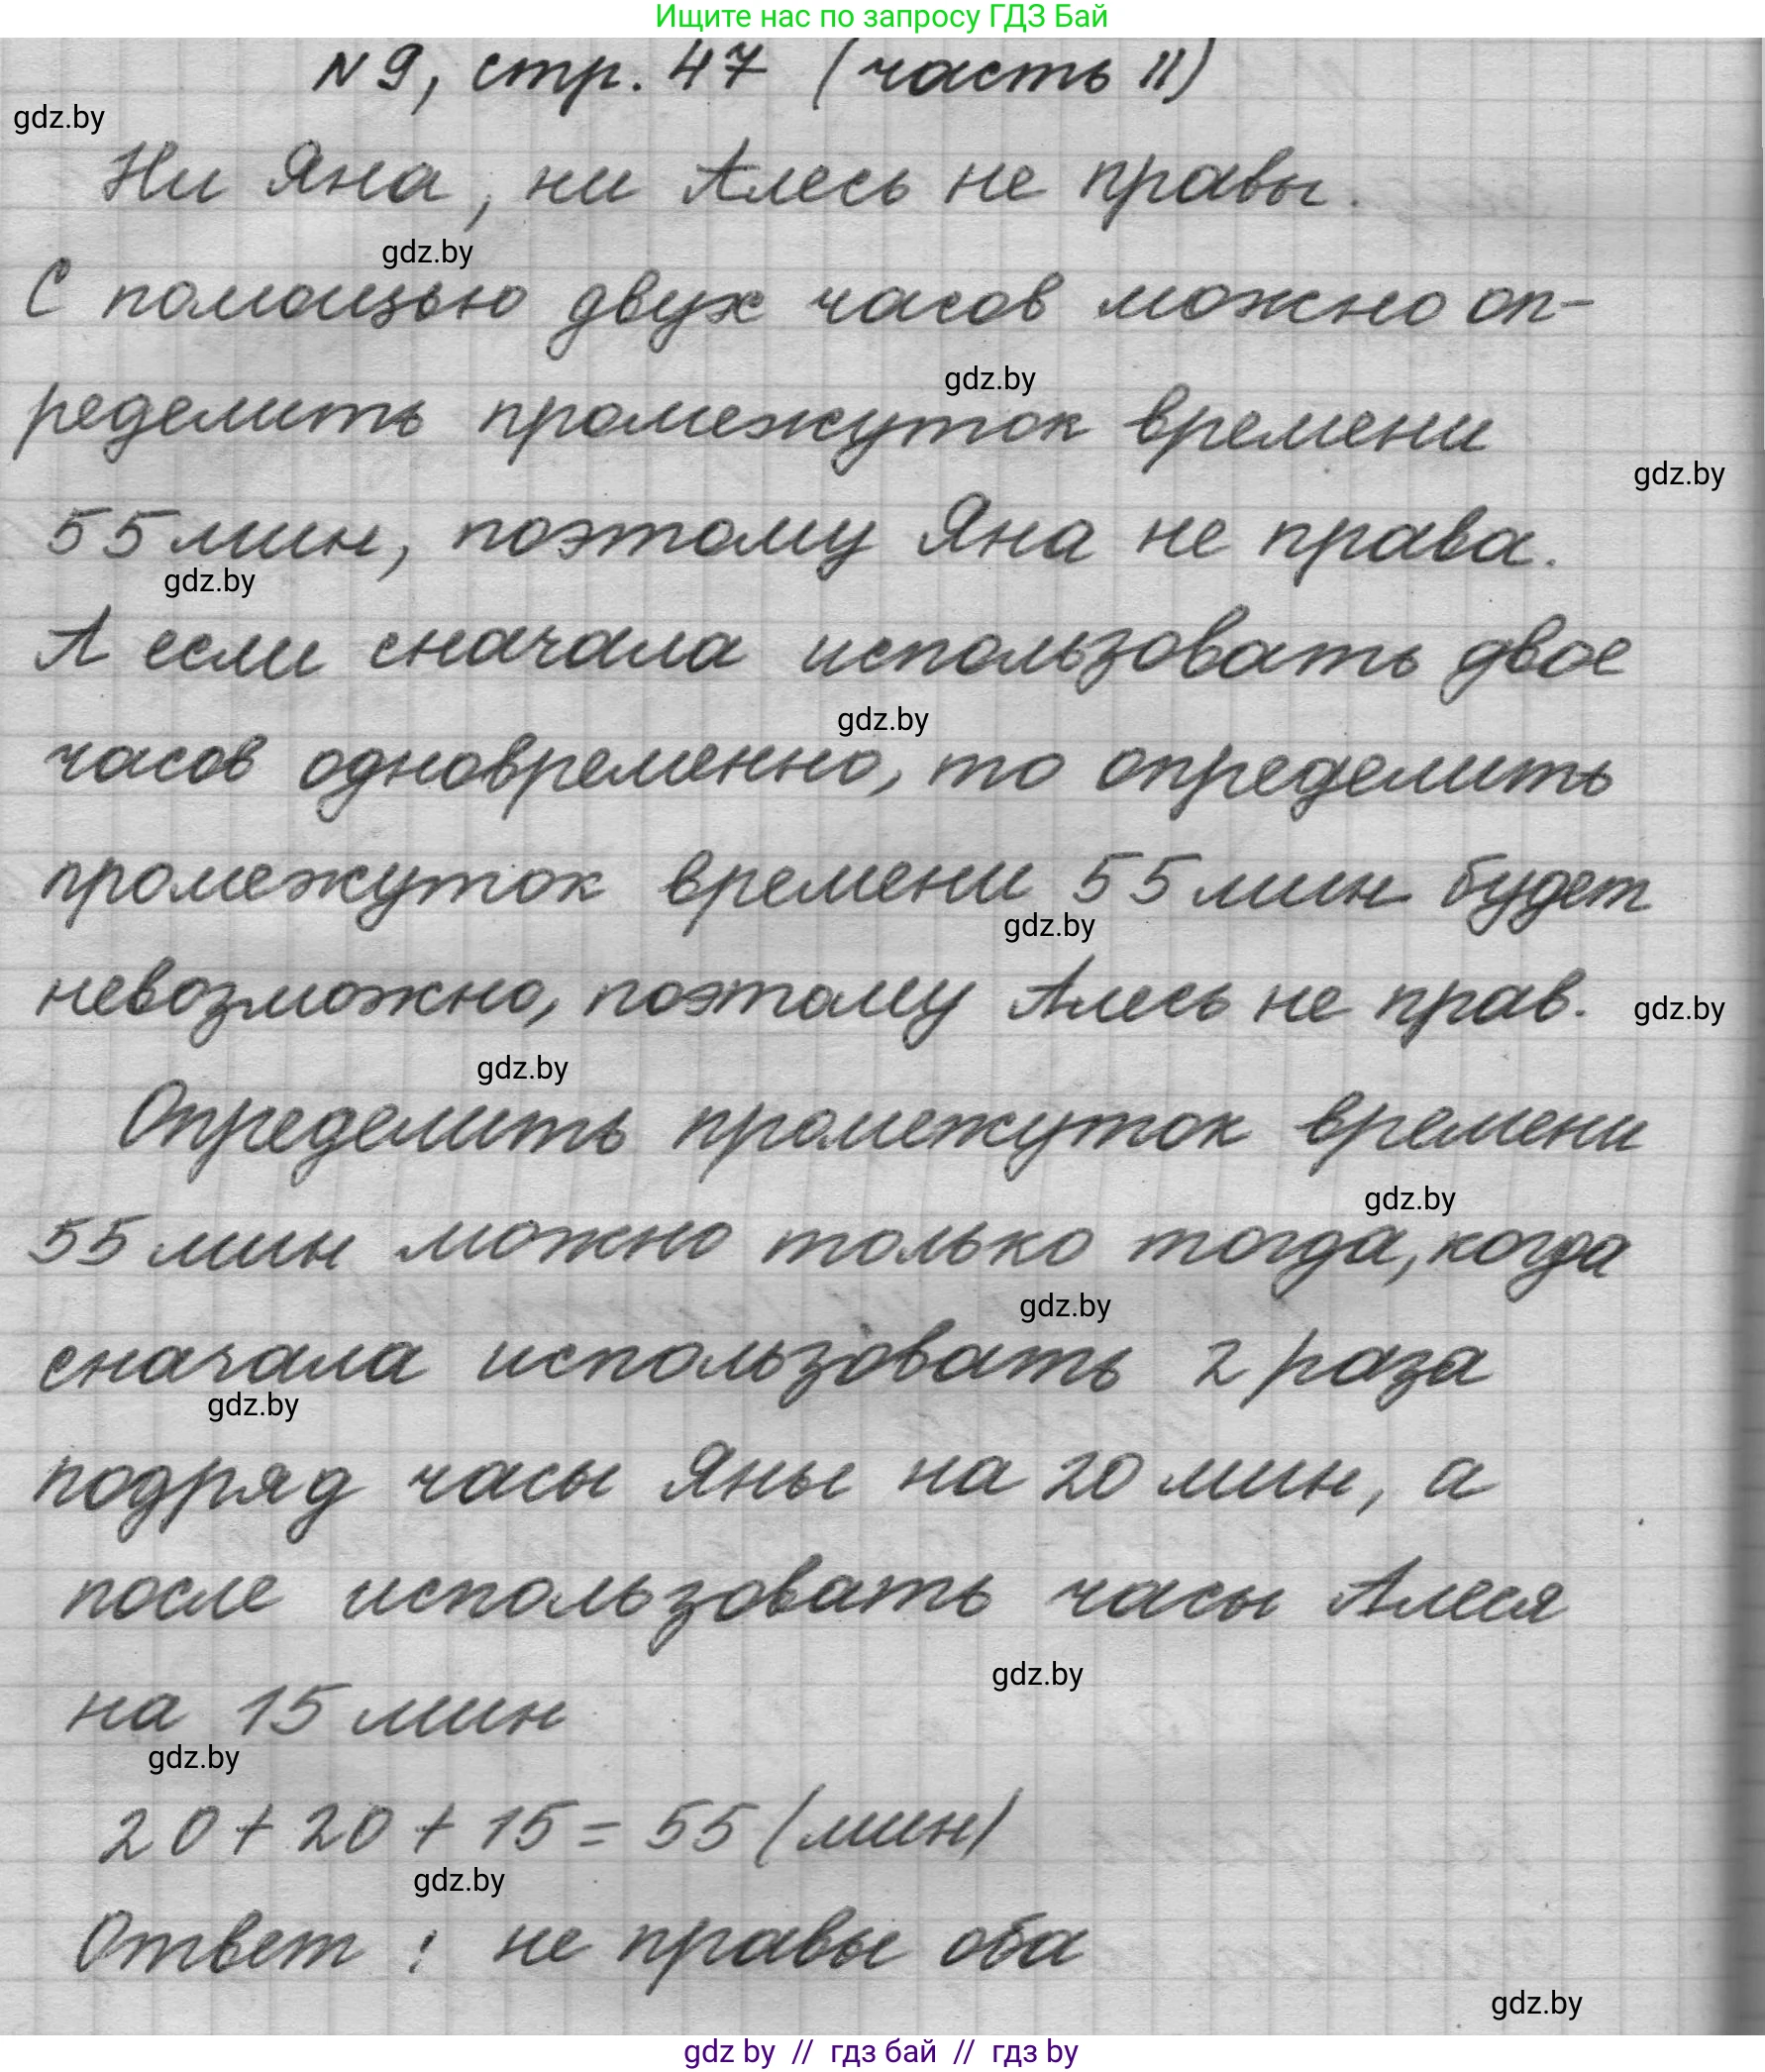 Ищите нас по запросу ГДЗ Бай
N 9, стр. 47 (часть II)
gdz.by
Ни Яна, ни Алесь не правы.
gdz.by
С помощью двух часов можно оп-
gdz.by
ределить промежуток времени
gdz.by
55 мин, поэтому Яна не права.
gdz.by
А если сначала использовать двое
gdz.by
часов одновременно, то определить
промежуток времени 55 мин будет
gdz.by
невозможно, поэтому Алесь не прав.
gdz.by
gdz.by
Определить промежуток времени
gdz.by
55 мин можно только тогда, когда
gdz.by
сначала использовать 2 раза
gdz.by
подряд часы Яны на 20 мин, а
после использовать часы Алеся
gdz.by
на 15 мин
gdz.by
20 + 20 + 15 = 55 (мин)
gdz.by
Ответ: не правы оба
gdz.by
gdz by // гдз бай // гдз by